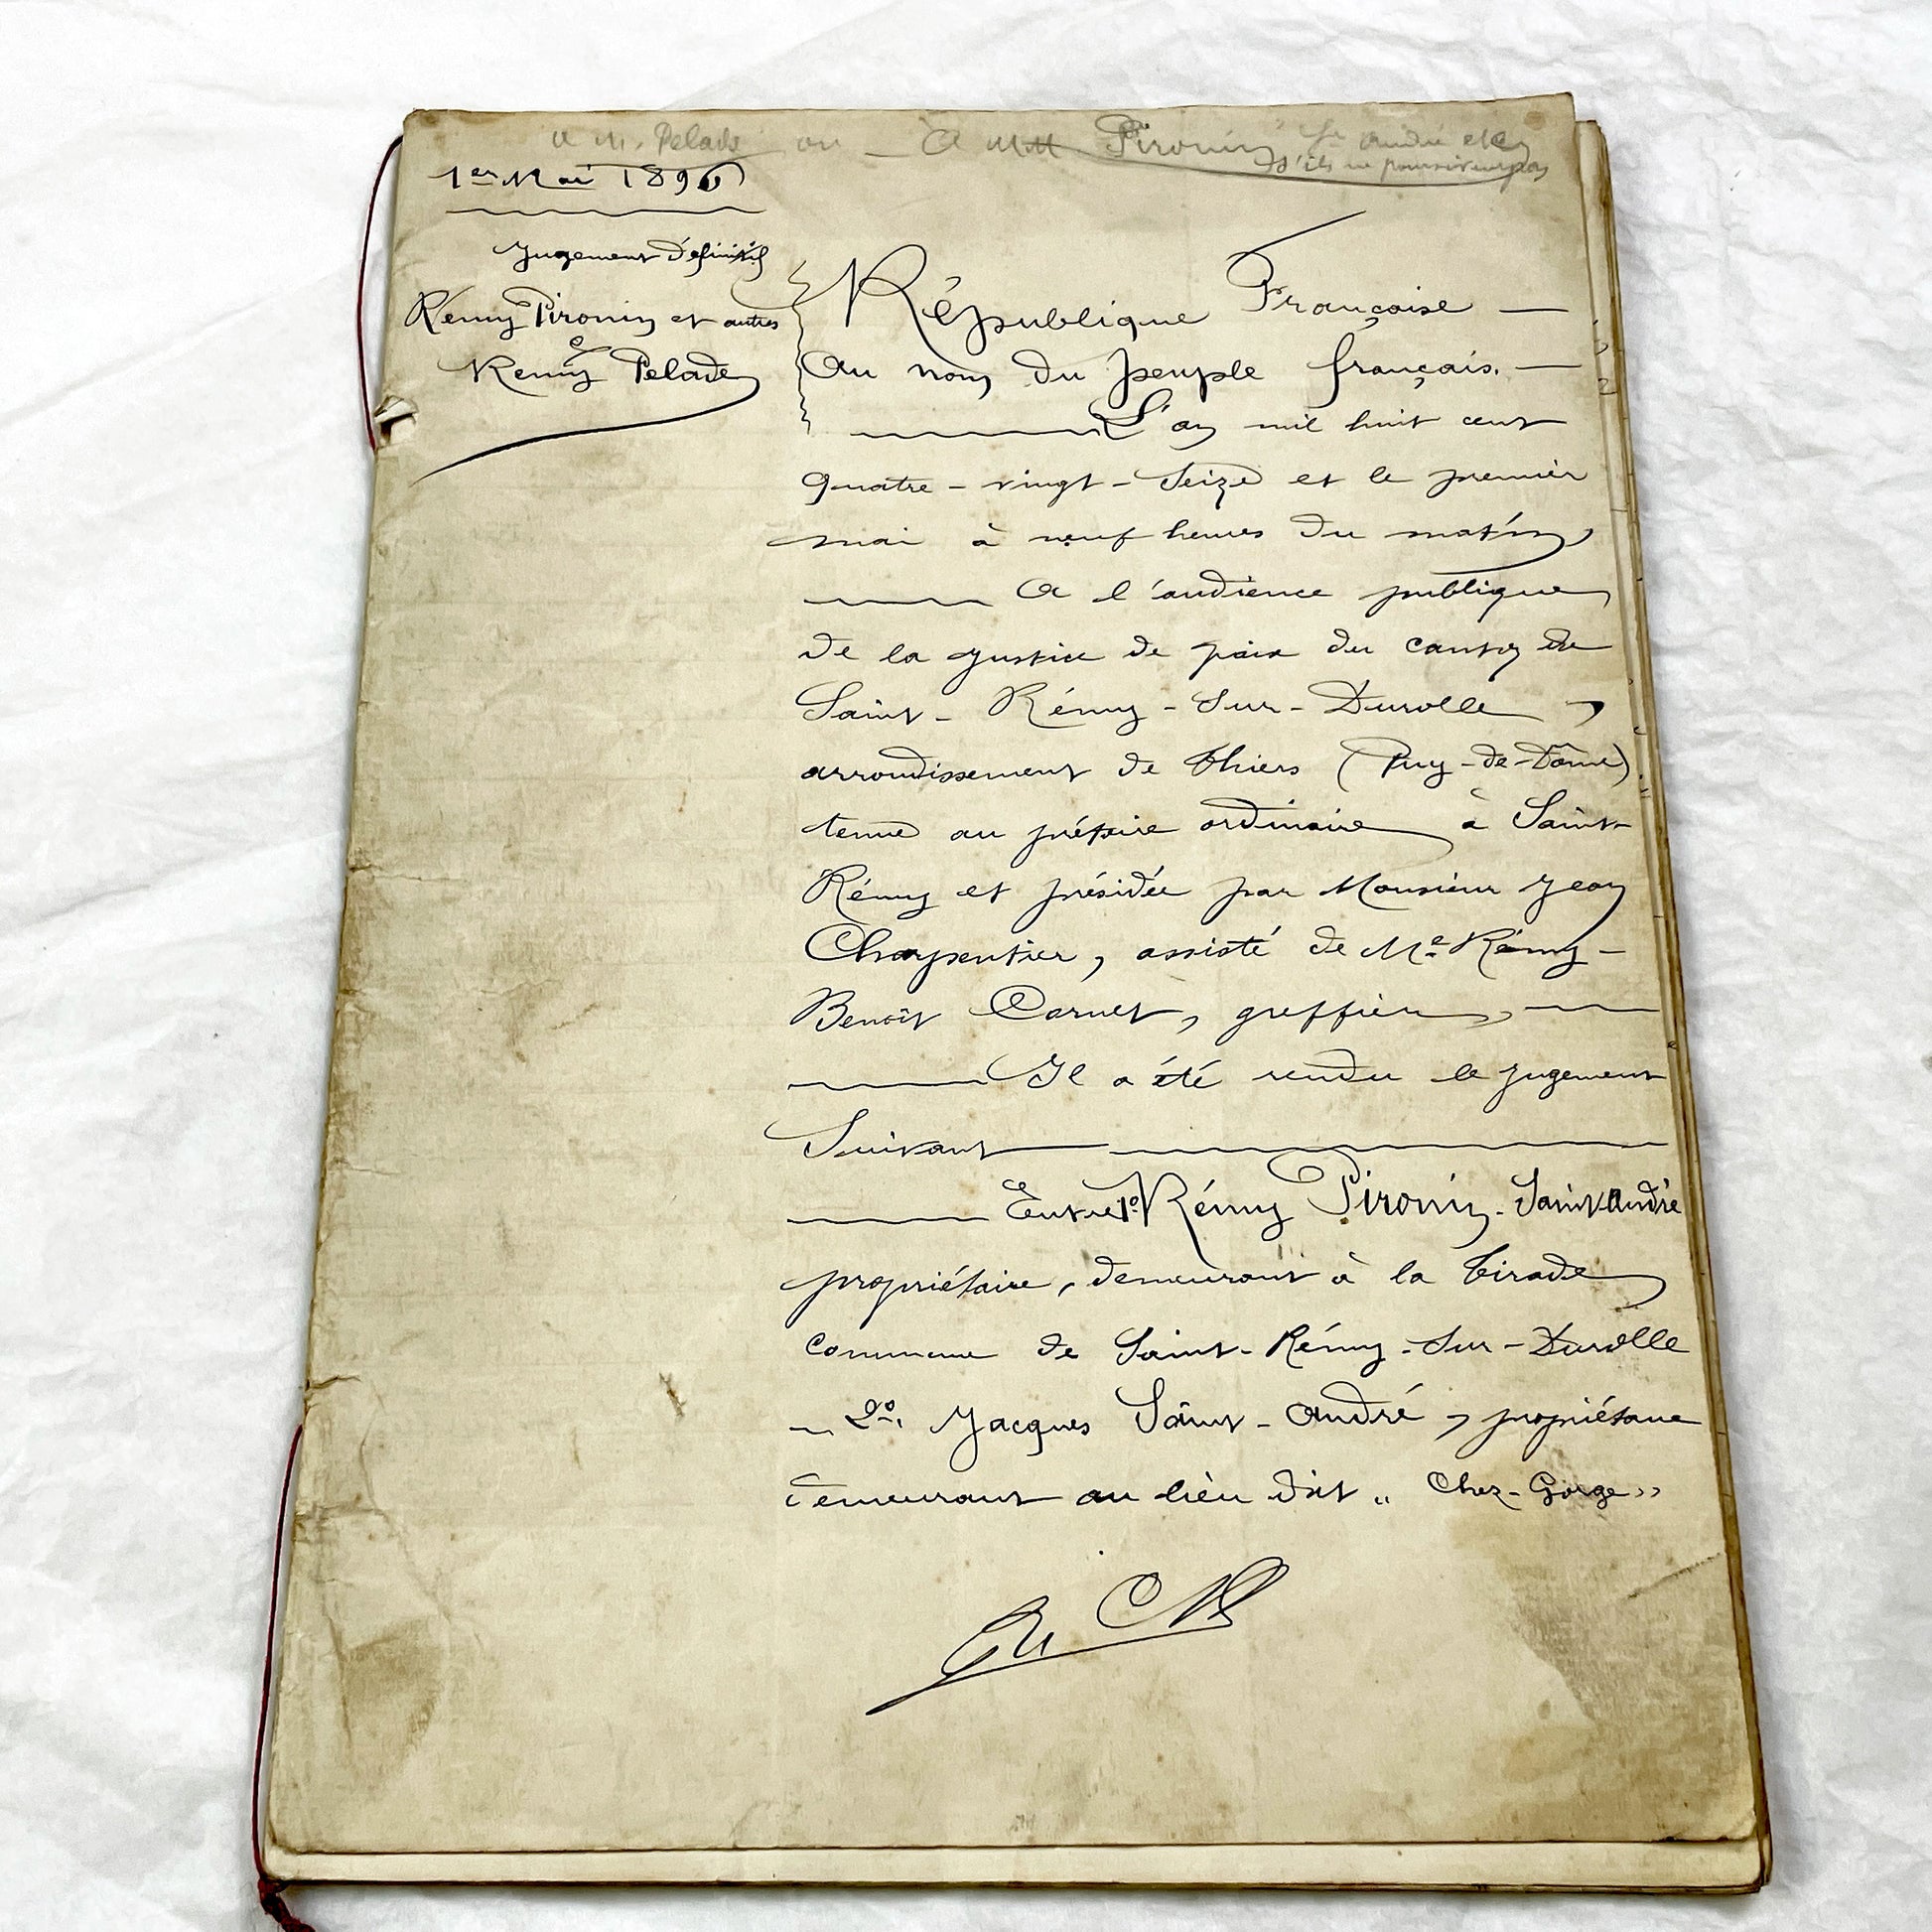 a M. Pelade ou — A MM. Pironin St André et
s'ils ne poursuivent pas
1er Mai 1896
Jugement Définitif
Rémy Pironin et autres
&
Remy Pelade
République Française —
Au nom du peuple français. —
L'an mil huit cent
quatre-vingt-seize et le premier
mai à neuf heures du matin
A l'audience publique
de la justice de paix du canton de
Saint-Rémy-sur-Durolle,
arrondissement de Thiers (Puy-de-Dôme)
tenue au prétoire ordinaire à Saint-
Rémy et présidée par Monsieur Jean
Charpentier, assisté de Me Rémy-
Benoît Carnet, greffier,
Il a été rendu le jugement
Suivant
Entre 1o Rémy Pironin-Saint-André
propriétaire, demeurant à la Tirade
commune de Saint-Rémy-sur-Durolle
— 2o. Jacques Saint-André, propriétaire
demeurant au lieu dit " Chez-Gorge "